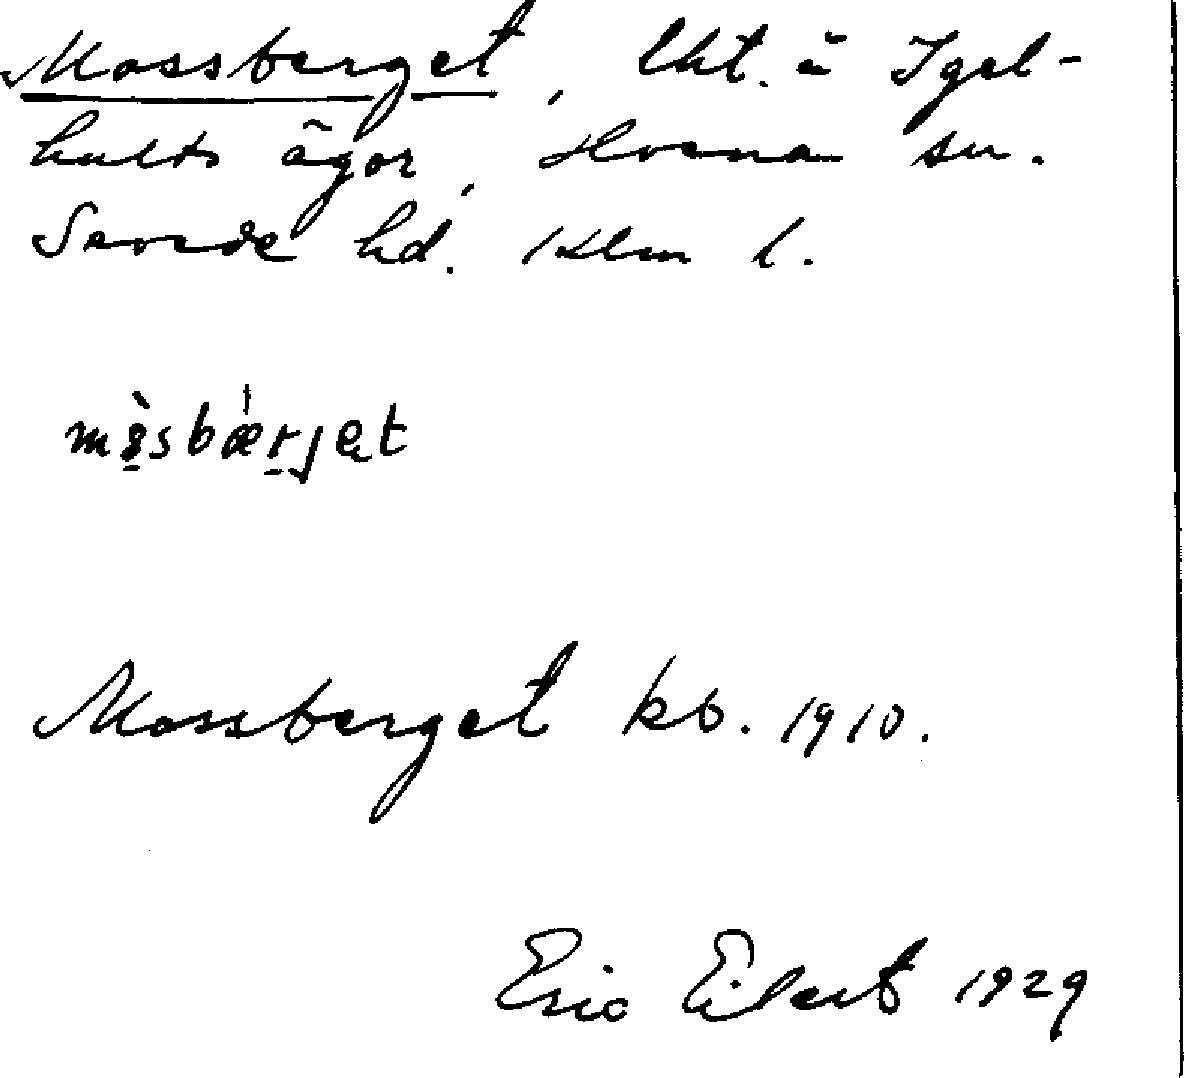 Mossberget, lht. å Igel-
hults ägor, Hvena sn.
Sevede hd. Klm l.
Mossberget kb. 1910.
Eric Eilert 1929